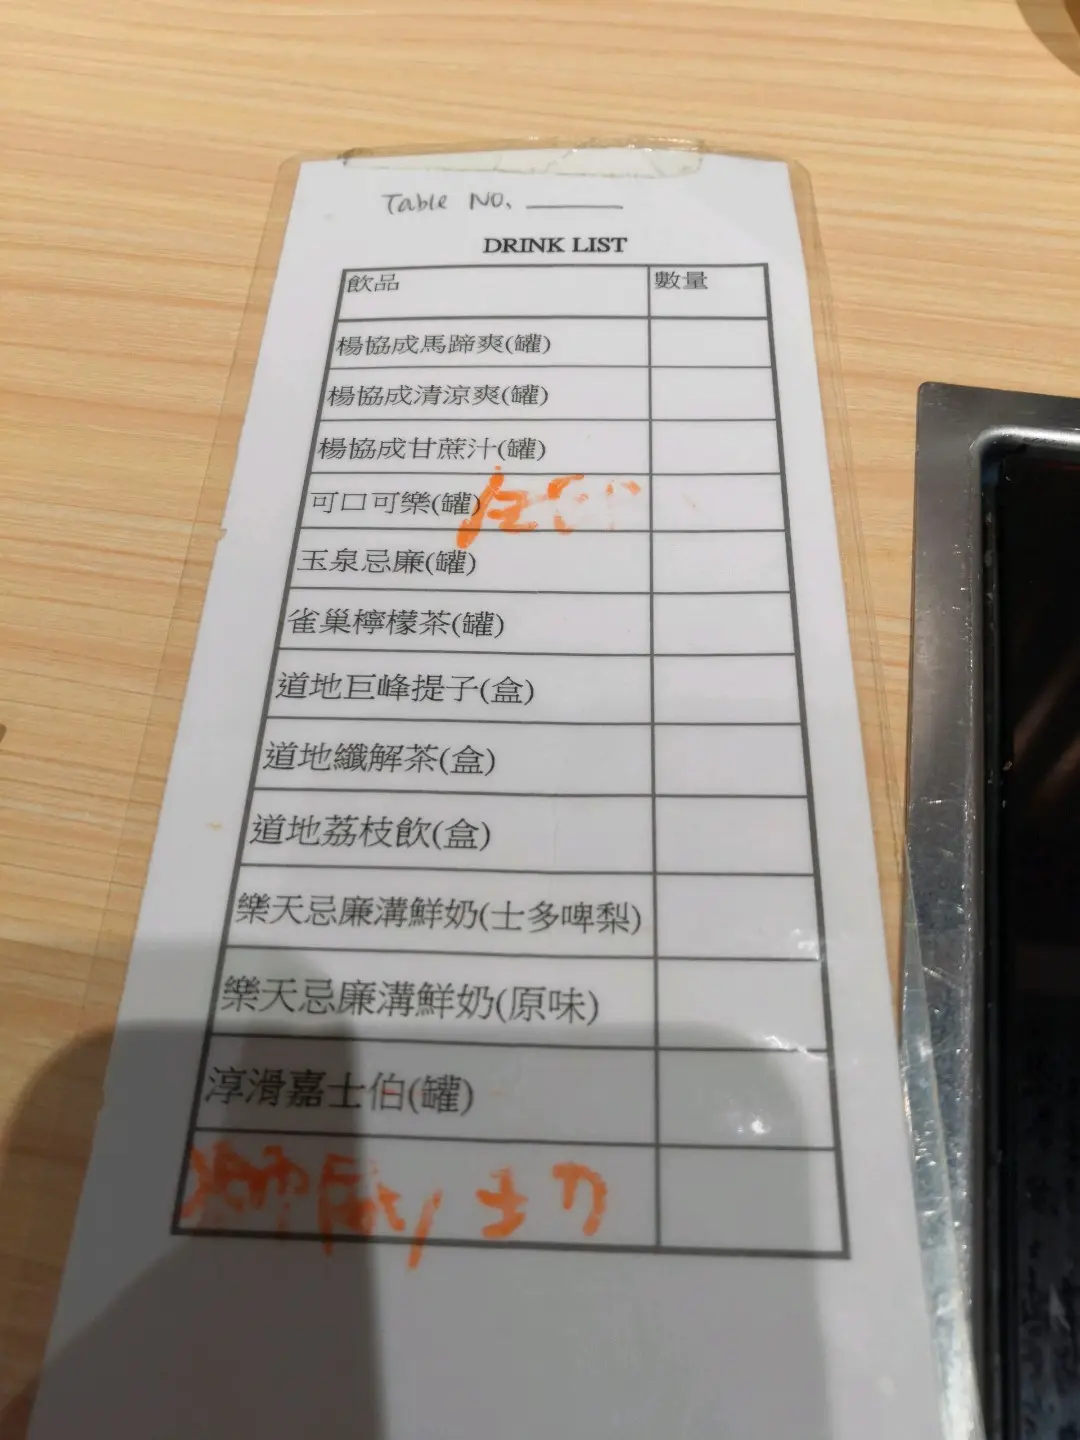 Table NO.
DRINK LIST
飲品 數量
楊協成馬蹄爽(罐)
楊協成清涼爽(罐)
楊協成甘蔗汁(罐)
可口可樂(罐)
玉泉忌廉(罐)
雀巢檸檬茶(罐)
道地巨峰提子(盒)
道地纖解茶(盒)
道地荔枝飲(盒)
樂天忌廉溝鮮奶(士多啤梨)
樂天忌廉溝鮮奶(原味)
淳滑嘉士伯(罐)